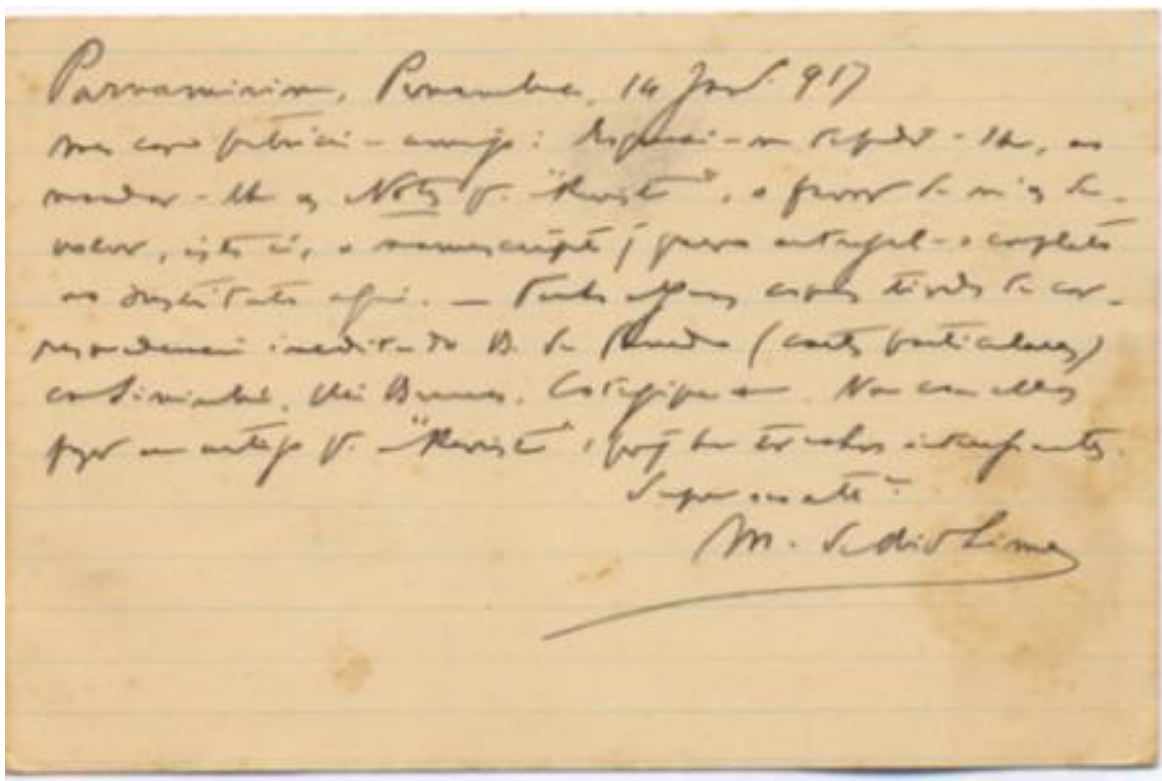 Parnamirim, Pernambuco, 14 Jan. 917
Meu caro patricio e amigo: Esqueci-me de pedir-lhe, ao
mandar-lhe as Notas p. a "Revista", o favor de m'as de-
volver, isto é, o manuscripto, q quero entregal-o completo
ao Instituto aqui. — Tenho alguns copias tiradas da cor-
respondencia inedita do B. de Penedo (cartas particulares)
com Sinimbú, Rio Branco, Cotegipe Vou com ellas
fazer um artigo p. a "Revista", porq ha trechos interessantes.
Sempre seu att.º
M. de Oliveira Lima